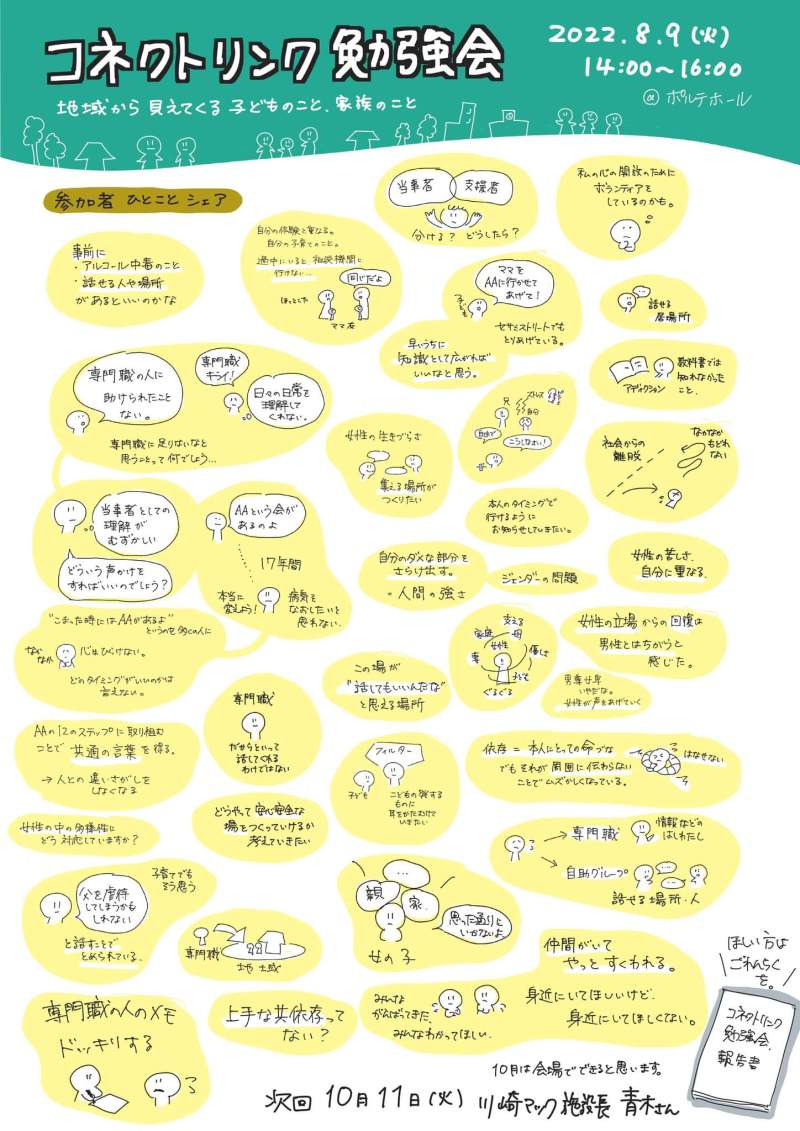 コネクトリンク 勉強会
2022.8.9(火)
14:00〜16:00
@ポルテホール
地域から 見えてくる 子どものこと、家族のこと
参加者 ひとこと シェア
事前に
・アルコール中毒のこと
・話せる人や場所
があるといいのかな
自分の体験と重なる。
自分の子育てのこと。
渦中にいると相談機関に
行けない…
同じだよ
ほっとした
ママ友
当事者
支援者
分ける? どうしたら?
私の心の開放のために
ボランティアを
しているのかも。
ママを
AAに行かせて
あげて!
子ども
セサミストリートでも
とりあげている。
話せる
居場所
早いうちに
知識として広がれば
いいなと思う。
アディクション
教科書では
知れなかった
こと、
専門職の人に
助けられたこと
ない。
専門職
キライ!
日々の日常を
理解して
くれない。
専門職に足りないなと
思うことって何でしょう…
女性の生きづらさ
集える場所が
つくりたい
ストレス
兄
自分
こうしなさい!
社会からの
離脱
なかなか
もどれ
ない
当事者としての
理解が
むずかしい
どういう声かけを
すればいいのでしょう?
AAという会が
あるのよ
17年間
本当に
変しよう!
病気を
なおしたいと
思わない
本人のタイミングで
行けるように
お知らせしていきたい。
自分のダメな部分を
さらけ出す。
= 人間の強さ
ジェンダーの問題
女性の苦しさ、
自分に重なる。
"こまった時にはAAがあるよ"
というのを多くの人に
なか
なか
心はひらけない。
どのタイミングがいいのかは
言えない。
この場が
"話してもいいんだな"
と思える場所
支える
家庭
母
女性
優しさ
妻
子ども
ぐるぐる
女性の立場からの回復は
男性とはちがうと
感じた。
男尊女卑
いやだな。
女性が声をあげていく
AAの12のステップに取り組む
ことで 共通の言葉を得る。
→ 人との違いさがしを
しなくなる
専門職
だからといって
話してくれる
わけではない
フィルター
子ども
こどもの発する
ものに
耳をかたむけて
いきたい
依存 = 本人にとっての命づな
でもそれが周囲に伝わらない
ことでムズかしくなっている。
はなせない
女性の中の多様性に
どう対応していますか?
どうやって安心安全な
場をつくっていけるか
考えていきたい
→専門職
情報などの
はしわたし
→自助グループ
話せる場所・人
子育てでも
そう思う
父を虐待
してしまうかも
しれない
と話すことで
とめられている。
専門職
地域
…
親
家
思った通りに
いかないよ
女の子
仲間がいて
やっと すくわれる。
身近にいてほしいけど、
身近にいてほしくない。
みんな
がんばってきた、
みんなわかってほしい。
専門職の人のメモ
ドッキリする
上手な共依存って
ない?
ほしい方は
ごれんらく
を。
コネクトリンク
勉強会
報告書
10月は会場でできると思います。
次回 10月11日(火) 川崎マック施設長 青木さん